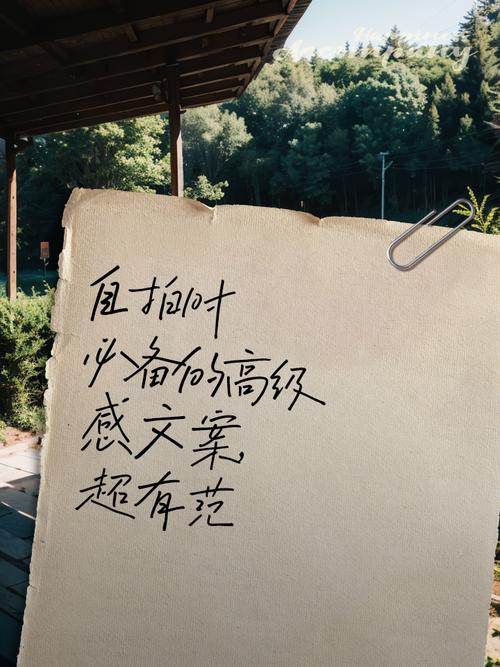 Happiness
自拍时
必备的高级
感文案,
超有范